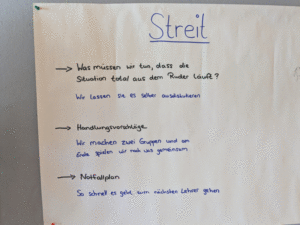 Streit
→ Was müssen wir tun, dass die
Situation total aus dem Ruder läuft?
Wir lassen sie es selber ausdiskutieren
→ Handlungsvorschläge
Wir machen zwei Gruppen und am
Ende spielen wir noch was gemeinsam
→ Notfallplan
So schnell es geht zum nächsten Lehrer gehen